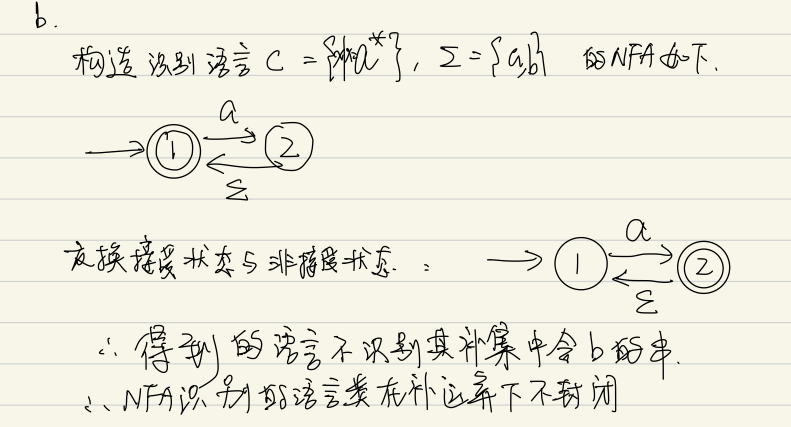 b.
构造识别语言 C = {a*}, Σ = {a,b} 的NFA如下.
a
1 2
Σ
交换接受状态与非接受状态:
a
1 2
Σ
∴ 得到的语言不识别其补集中含b的串.
∴ NFA识别的语言类在补运算下不封闭